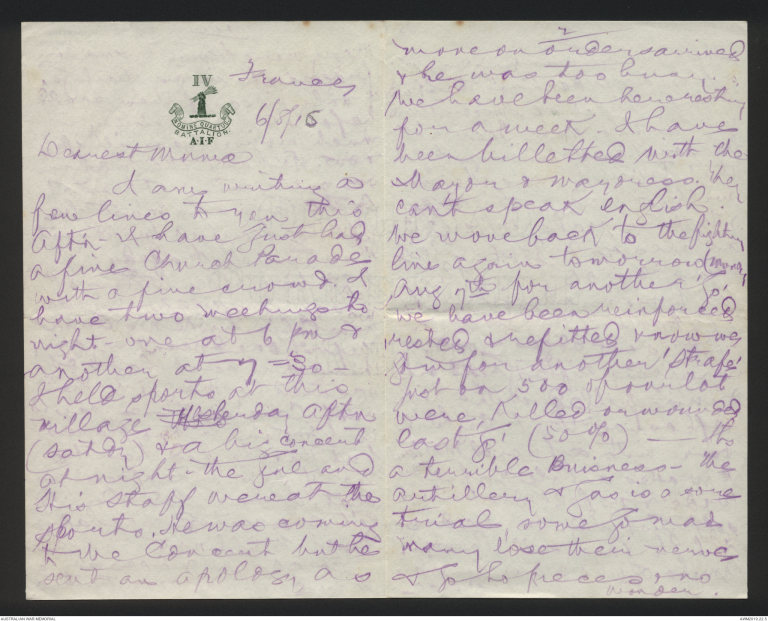 IV
NOMINE QUARTUS
BATTALION.
A·I·F
France,
6/8/16
Dearest Mama
I am writing a
few lines to you this
Aftn - I have just had
a fine Church Parade
with a fine crowd. I
have two meetings to
night - one at 6 pm &
another at 7=30 -
I held sports at this
village yesterday aftn
(Satdy) & a big concert
at night - the Gnl and
His staff were at the
sports. He was coming
to the Concert but he
sent an apology as
more on orders arrived
& he was too busy.
We have been here resting
for a week. I have
been billetted with the
Mayor & mayoress. They
cant speak english.
We move back to the fighting
line again tomorrow (Monday
Aug 7th for another 'Go'
we have been reinforced
rested & refitted & now we
go in for another 'Strafe'
Just on 500 of our lot
were killed or wounded
last 'go' (50%) — Its
a terrible Buisness - the
artillery & Gas is a sore
trial, some go mad
many lose their nerves
& go to pieces & no
wonder.
AUSTRALIAN WAR MEMORIAL